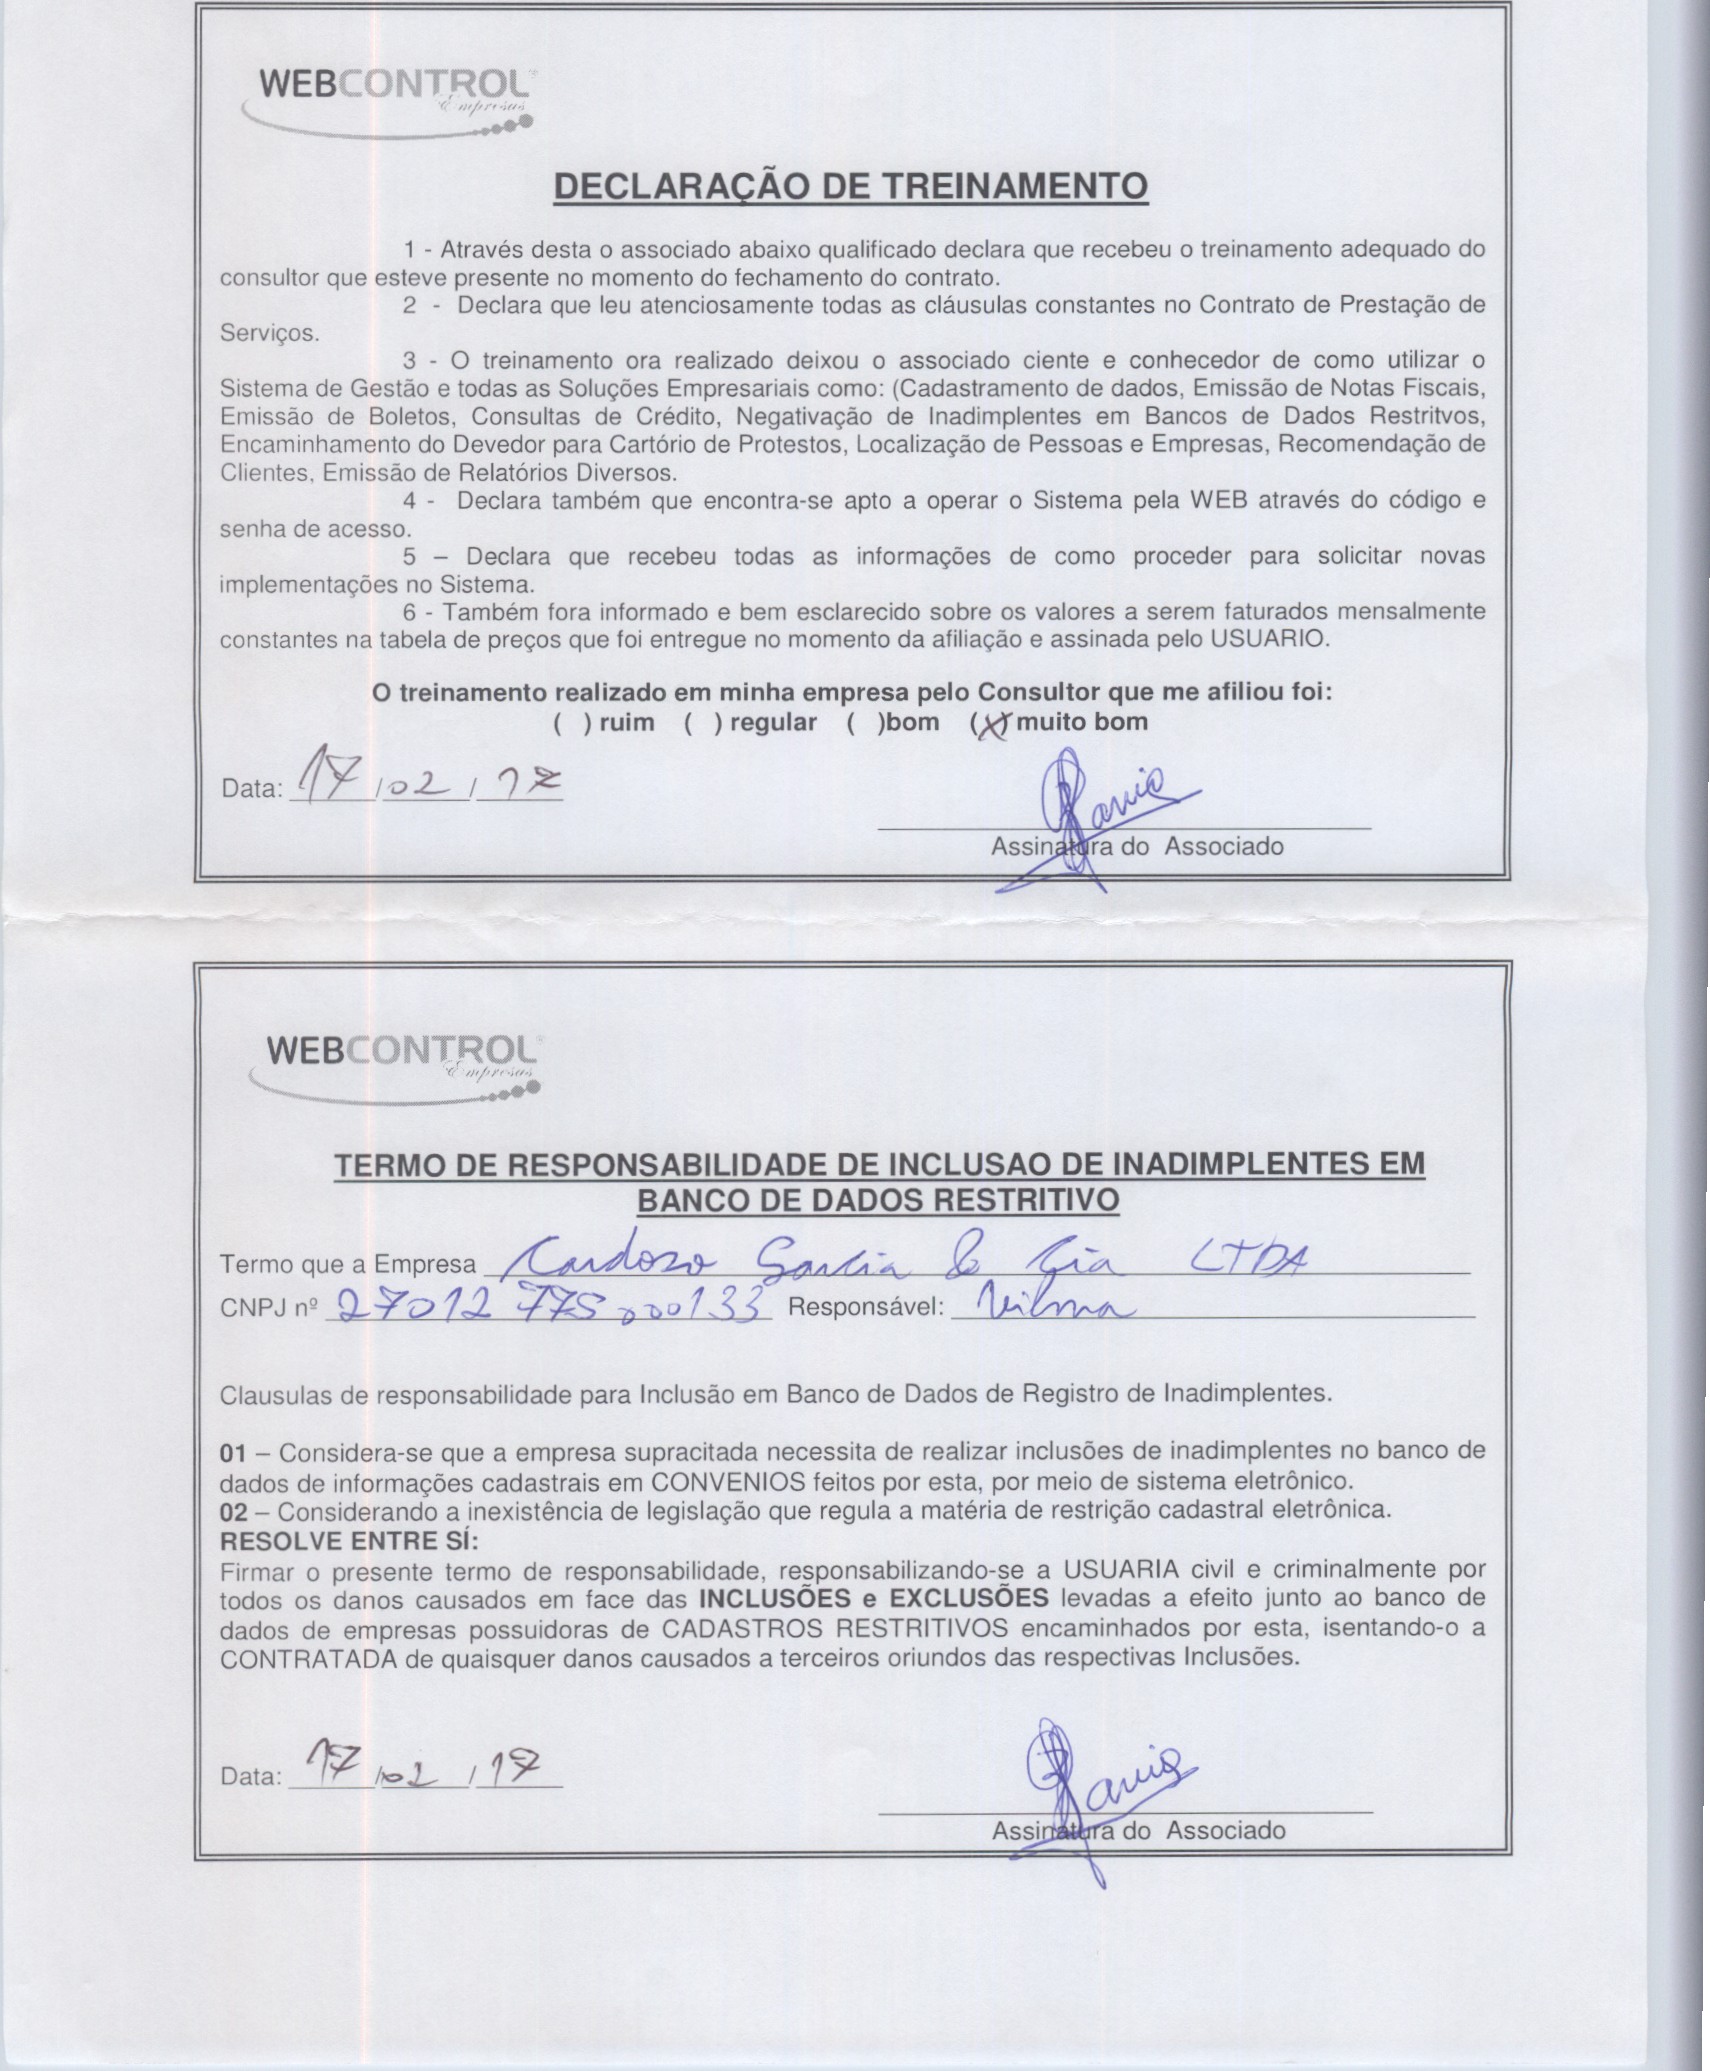 WEBCONTROL
Empresas
DECLARAÇÃO DE TREINAMENTO
1 - Através desta o associado abaixo qualificado declara que recebeu o treinamento adequado do
consultor que esteve presente no momento do fechamento do contrato.
2 - Declara que leu atenciosamente todas as cláusulas constantes no Contrato de Prestação de
Serviços.
3 - O treinamento ora realizado deixou o associado ciente e conhecedor de como utilizar o
Sistema de Gestão e todas as Soluções Empresariais como: (Cadastramento de dados, Emissão de Notas Fiscais,
Emissão de Boletos, Consultas de Crédito, Negativação de Inadimplentes em Bancos de Dados Restritvos,
Encaminhamento do Devedor para Cartório de Protestos, Localização de Pessoas e Empresas, Recomendação de
Clientes, Emissão de Relatórios Diversos.
4 - Declara também que encontra-se apto a operar o Sistema pela WEB através do código e
senha de acesso.
5 – Declara que recebeu todas as informações de como proceder para solicitar novas
implementações no Sistema.
6 - Também fora informado e bem esclarecido sobre os valores a serem faturados mensalmente
constantes na tabela de preços que foi entregue no momento da afiliação e assinada pelo USUARIO.
O treinamento realizado em minha empresa pelo Consultor que me afiliou foi:
( ) ruim ( ) regular ( )bom (X) muito bom
Data: 17/02/17
Assinatura do Associado
WEBCONTROL
Empresas
TERMO DE RESPONSABILIDADE DE INCLUSAO DE INADIMPLENTES EM
BANCO DE DADOS RESTRITIVO
Termo que a Empresa Cardozo Garcia & Cia LTDA
CNPJ nº 27012775000133 Responsável: Vilma
Clausulas de responsabilidade para Inclusão em Banco de Dados de Registro de Inadimplentes.
01 – Considera-se que a empresa supracitada necessita de realizar inclusões de inadimplentes no banco de
dados de informações cadastrais em CONVENIOS feitos por esta, por meio de sistema eletrônico.
02 – Considerando a inexistência de legislação que regula a matéria de restrição cadastral eletrônica.
RESOLVE ENTRE SÍ:
Firmar o presente termo de responsabilidade, responsabilizando-se a USUARIA civil e criminalmente por
todos os danos causados em face das INCLUSÕES e EXCLUSÕES levadas a efeito junto ao banco de
dados de empresas possuidoras de CADASTROS RESTRITIVOS encaminhados por esta, isentando-o a
CONTRATADA de quaisquer danos causados a terceiros oriundos das respectivas Inclusões.
Data: 17/02/17
Assinatura do Associado